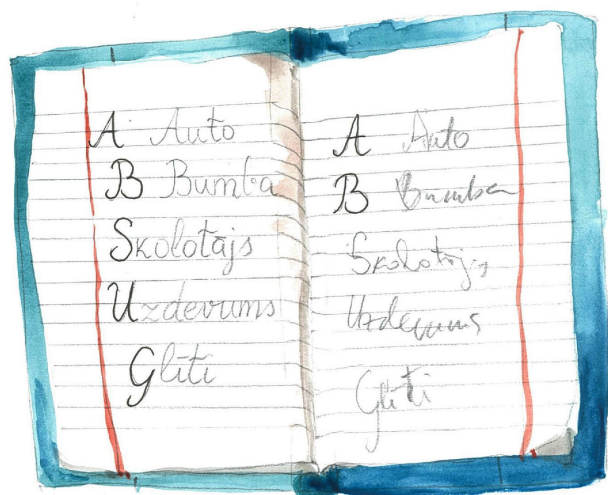 A Auto
B Bumba
Skolotājs
Uzdevums
Glīti
A Auto
B Bumba
Skolotājs
Uzdevums
Glīti